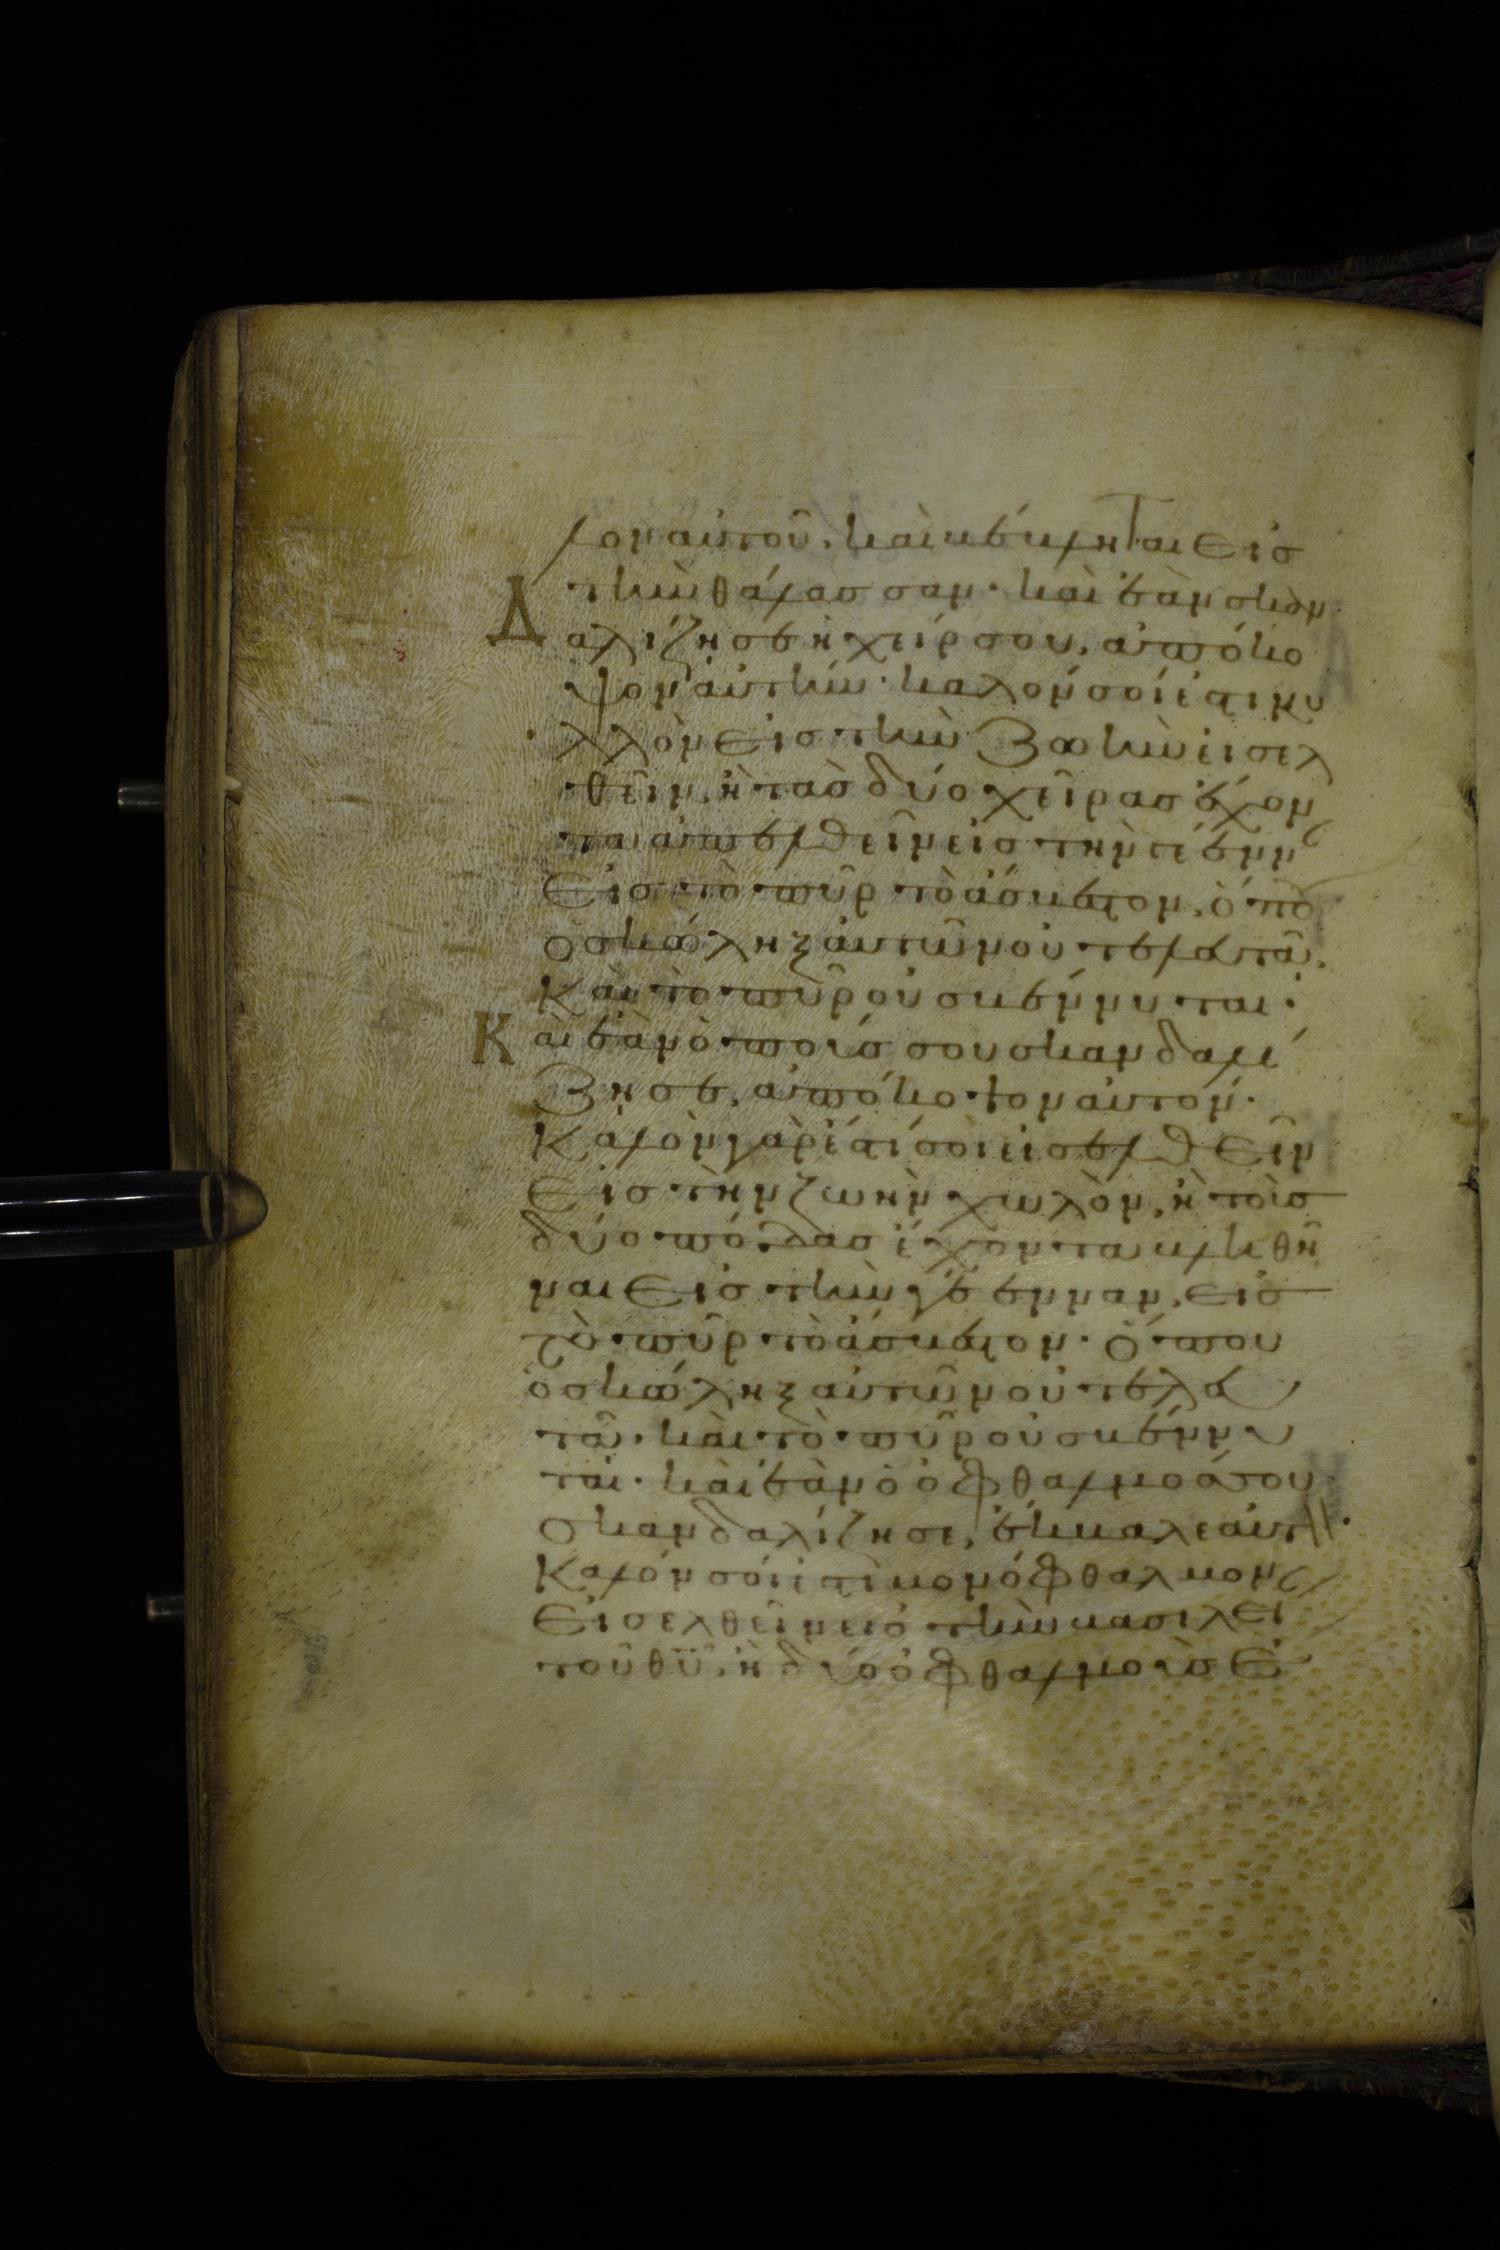 λον αὐτοῦ, καὶ βέβληται εἰς
τὴν θάλασσαν· καὶ ἐὰν σκαν
Δαλίζησε ἡ χείρ σου, ἀπόκο
ψον αὐτήν· καλόν σοί ἐστι κυ
λλὸν εἰς τὴν ζωὴν εἰσελ
θεῖν, ἢ τὰς δύο χεῖρας ἔχον
τα ἀπελθεῖν εἰς τὴν γέενν
εἰς τὸ πῦρ τὸ ἄσβεστον, ὅπου
ὁ σκώληξ αὐτῶν οὐ τελευτᾷ,
Καὶ τὸ πῦρ οὐ σβέννυται·
Καὶ ἐὰν ὁ πούς σου σκανδαλί
ζησε, ἀπόκοψον αὐτόν·
Καλὸν γάρ ἐστί σοι εἰσελθεῖν
εἰς τὴν ζωὴν χωλὸν, ἢ τοὺς
δύο πόδας ἔχοντα βληθῆ
ναι εἰς τὴν γέενναν, εἰς
τὸ πῦρ τὸ ἄσβεστον· ὅπου
ὁ σκώληξ αὐτῶν οὐ τελευ
τᾷ· καὶ τὸ πῦρ οὐ σβέννυ
ται· καὶ ἐὰν ὁ ὀφθαλμός σου
σκανδαλίζησε, ἔκβαλε αὐτ
Καλόν σοί ἐστὶ μονόφθαλμον
εἰσελθεῖν εἰς τὴν βασιλεί
τοῦ θῦ, ἢ δύο ὀφθαλμοὺς ἔ